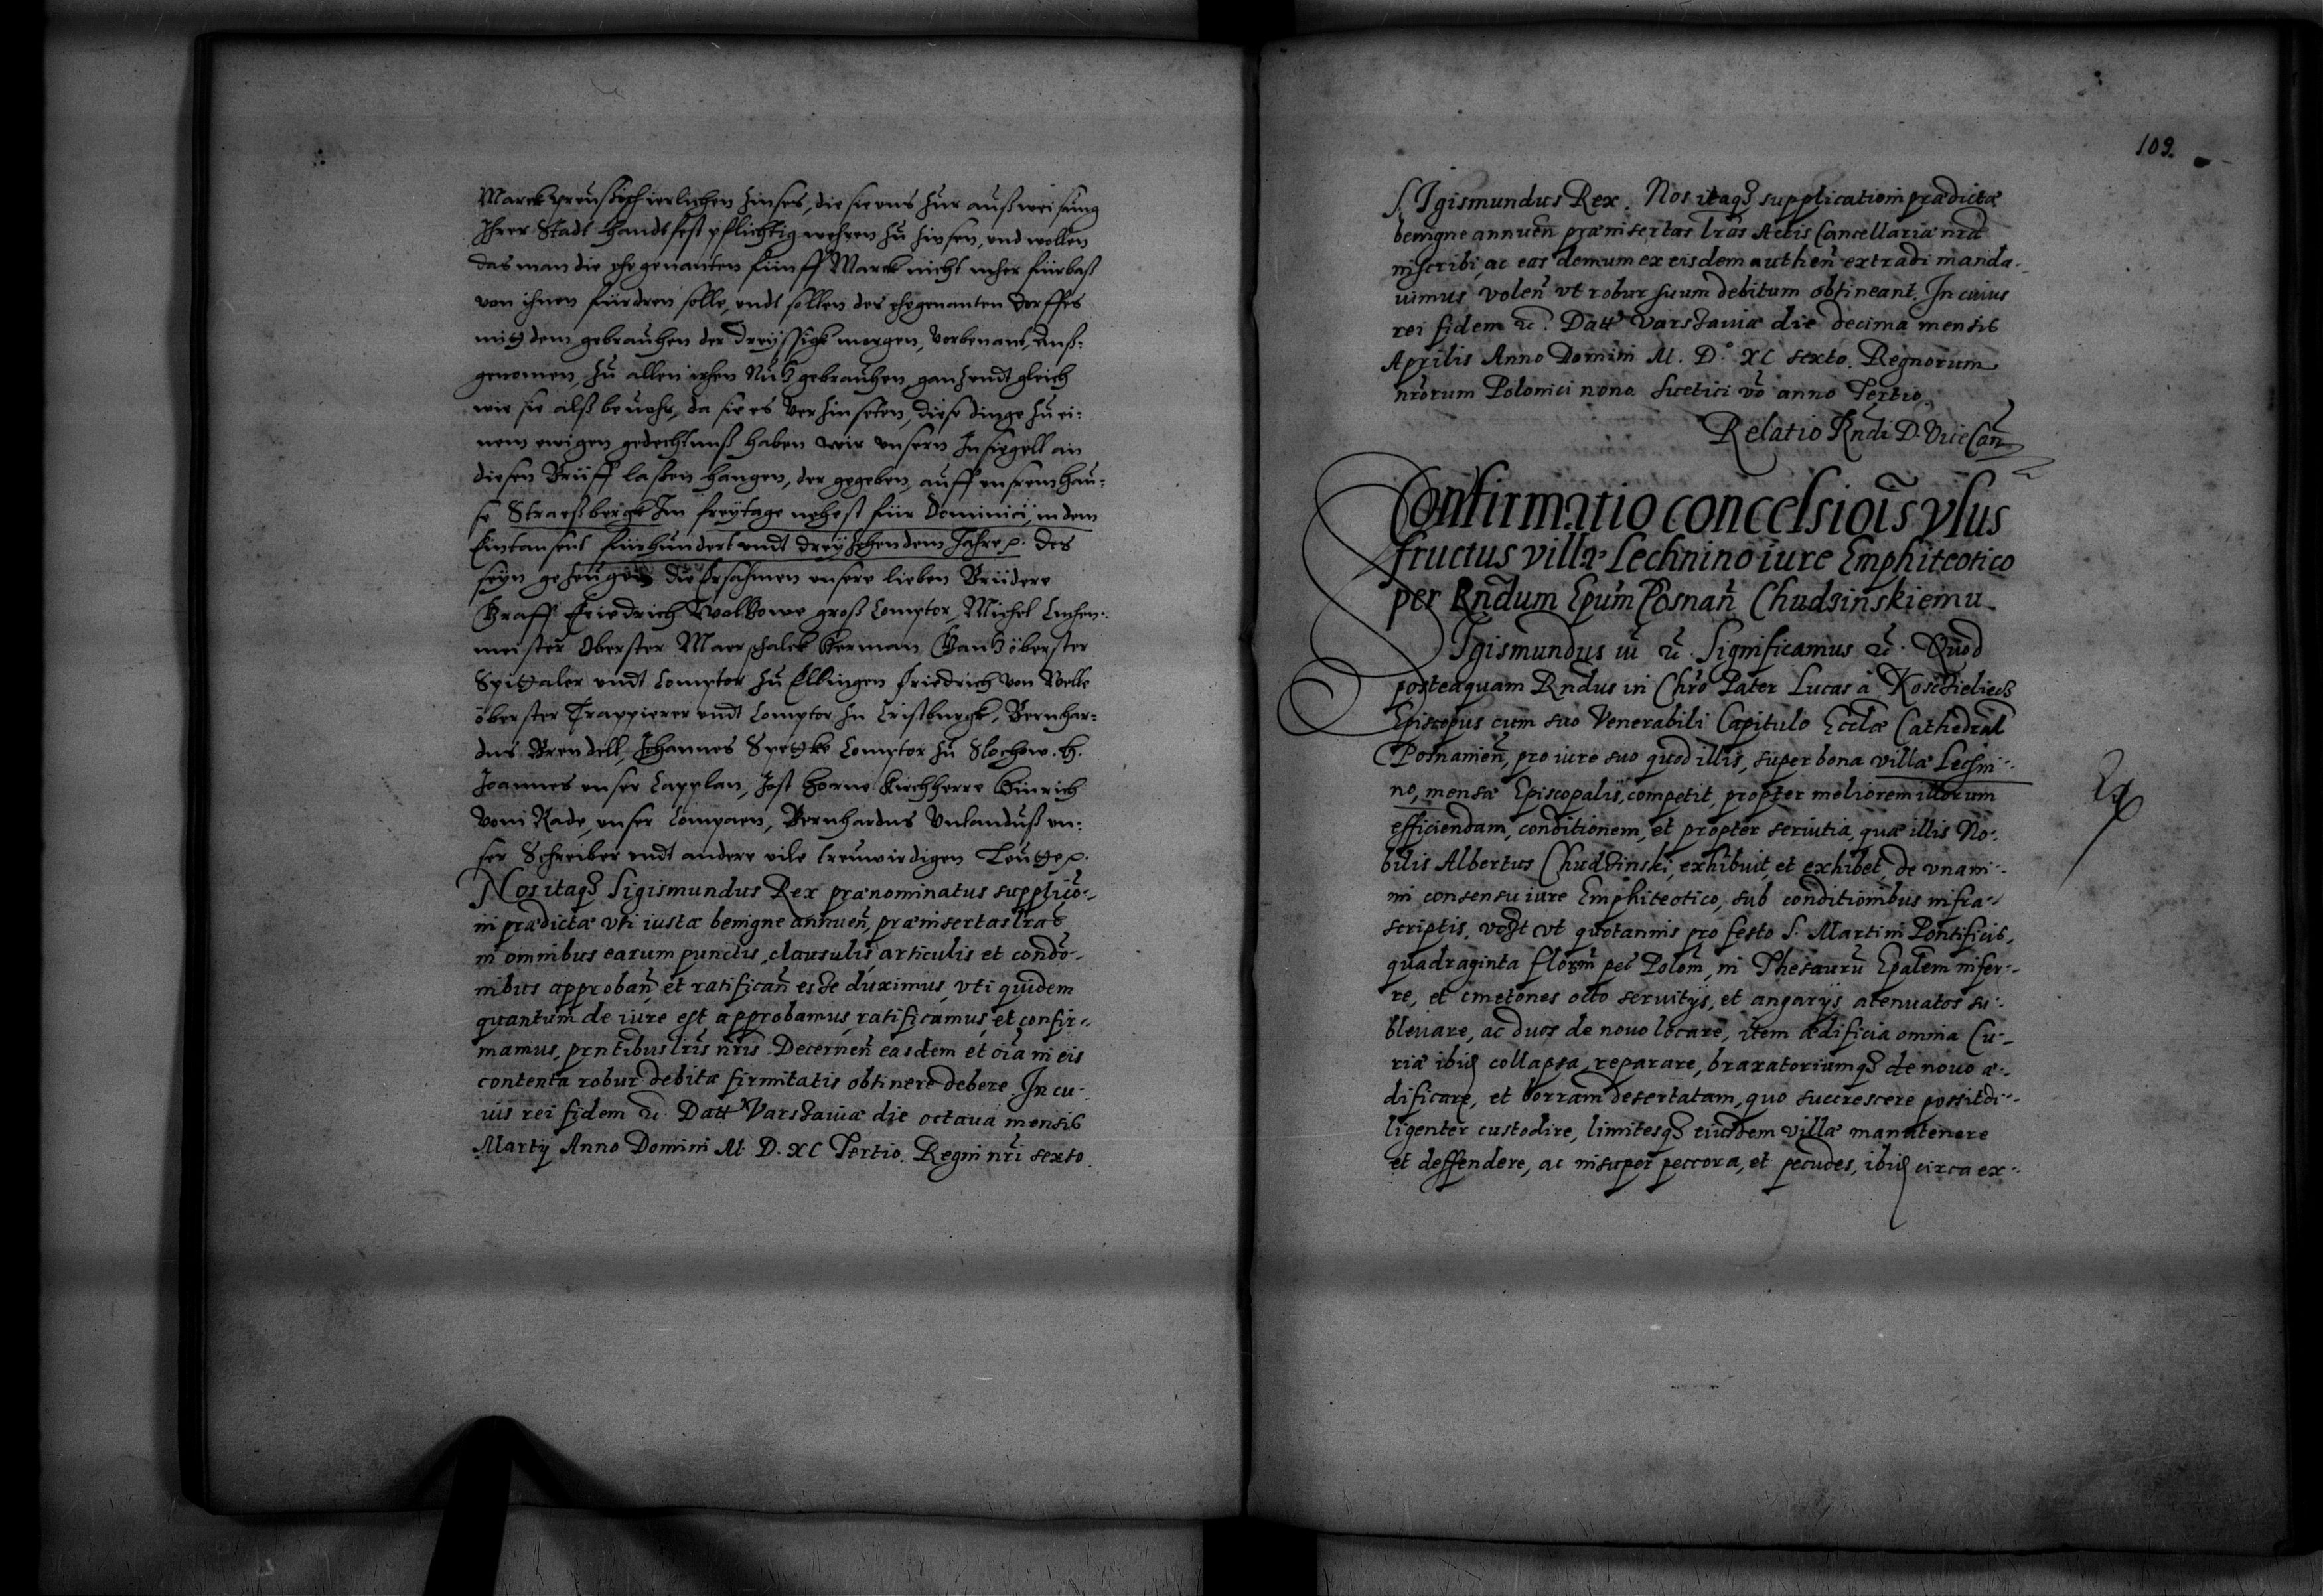 Marck preussisch ierlichen Zinses, die sie uns zur außweisung
Ihrer Stadt Handtfest pflichtig wehren zu zinsen, und wollen
das man die ehegenanten fünff Marck nicht meher fürbaß
von ihnen fürdren solle, undt sollen des ehegenanten dorffes
mitt dem gebrauchen der dreyssigk morgen, vorbenant, Auß-
genomen, zu allen ihren Nutz gebrauchen, ganz undt gleich
wie sie alß bevohr, da sie es verzinseten, diese dinge zu ei-
nem ewigen gedechtnuß haben wir unsern Insiegell an
diesen Brieff laßen hangen, der gegeben, auff unsrem Hau-
se Straeßbergk Im freytage nehest für Dominici, in dem
Eintausent fürhundert undt dreyzehendem Jahre p. Des
seyn gezeugen die Ersahmen unsere lieben Brüdere
Graff Friedrich Grosß Comptor, Michel Cuchen-
meister Oberster Maerschalck Herman Ganß öberster
Spittaler undt Comptor zu Elbingen Friedrich von Welle
öberster Trappierer undt Comptor zu Cristburgk, Bernhar-
dus Brendell, Johannes Comptor zu Slochow. H.
Joannes unser Capplan, Jost Horne Kirchherre Hinrich
vom Rade, unser Compaen, Bernhardus un-
ser Schreiber undt andere vile treuwirdigen Leutte p.
Nos itaq3 Sigismundus Rex prænominatus supplicõ-
ni prædictæ vti iustæ benigne annueñ, præinsertas lras
in omnibus earum punctis, clausulis, articulis et condõ-
nibus approbañ, et ratificañ esse duximus, vti quidem
quantum de iure est approbamus, ratificamus, et confir-
mamus, prntibus lris nris. Decerneñ easdem et oĩa in eis
contenta robur debitæ firmitatis obtinere debere. In cu-
uis rei fidem &c. Datt Varsaviæ die octaua mensis
Martij Anno Domini M. D. XC Tertio. Regni nri sexto.
109.
Sigismundus Rex. Nos itaq3 supplicationi prædictæ
benigne annueñ præinsertas lras Actis Cancellariæ nræ
inscribi, ac eas demum ex eisdem autheñ extradi manda-
uimus voleñ vt robur suum debitum obtineant. In cuius
rei fidem &c. Datt Varsaviæ die decima mensis
Aprilis Anno Domini M. D. XC sexto. Regnorum
nrorum Polonici nono Suetici võ anno Tertio.
Relatio Rndi D. ViceCañ
Confirmatio concessiois vsus
fructus villæ Lechnino iure Emphiteotico
per Rndum Epum Posnañ Chudzinskiemu
Sigismundus iii &c. Significamus &c. Quod
posteaquam Rndus in Chro Pater Lucas à Koscielecz
Episcopus cum suo Venerabili Capitulo Ecclæ Cathedral
Posnanieñ, pro iure suo quod illis, super bona villæ Lechni-
no, mensæ Episcopalis, competit, propter meliorem illorum
efficiendam, conditionem, et propter seruitia, quæ illis No-
bilis Albertus Chudzinski, exhibuit, et exhibet, de vnani-
mi consensu iure Emphiteotico, sub conditionibus infra-
scriptis, vdzt vt quotannis pro festo S. Martini Pontificis,
quadraginta florm pec Polom, in Thesauru Epalem infer-
re, et cmetones octo seruitijs, et angarijs atenuatos su-
bleuare, ac duos de nouo locare, item ædificia omnia Cu-
riæ ibid collapsa, reparare, braxatoriumq3 de nouo æ-
dificare, et borram desertatam, quo succrescere possit di-
ligenter custodire, limitesq3 eiusdem villæ manutenere
et deffendere, ac insuper peccora, et pecudes, ibid circa ex-